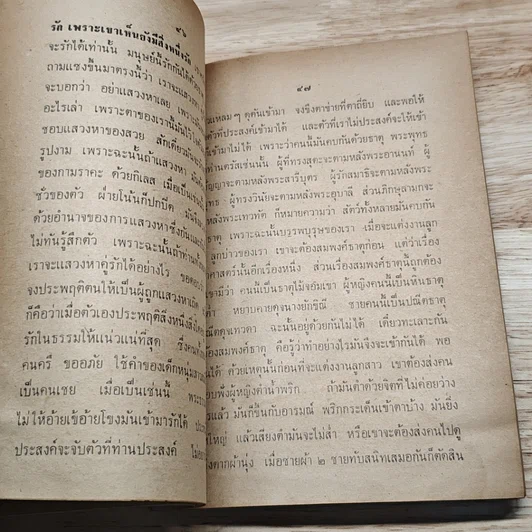 ๙๖
รัก เพราะเขาเห็นยังมีสิ่งหนึ่งรัก
จะรักได้เท่านั้น มนุษย์นี้รักกันได้ด้วย
ถามแซงขึ้นมาตรงนี้ว่า เราจะแสวง
จะบอกว่า อย่าแสวงหาเลย เพราะ
อะไรเล่า เพราะตาของเรานี้มันไว้
ชอบแสวงหาของสวย สักเดี๋ยวมัน
รูปงาม เพราะฉะนั้นถ้าแสวงหา มัน
ของกามราคะ ด้วยกิเลส เมื่อเป็น
ชั่วของตัว ฝ่ายโน้นก็ปกปิด มัน
ด้วยอำนาจของการแสวงหาซึ่งกันและ
ไม่ทันรู้สึกตัว เพราะฉะนั้นถ้าท่าน
เราจะแสวงหาคู่รักได้อย่างไร ขอตอบ
จงประพฤติตนให้เป็นผู้ถูกแสวงหาเถิด
ก็คือว่าเมื่อตัวเองประพฤติสิ่งหนึ่งสิ่งใด
รักในธรรมให้แน่วแน่ที่สุด ซึ่งคน
คนครึ ขออภัย ใช้คำของเด็กหนุ่ม
เป็นคนเชย เมื่อเป็นเช่นนี้ พระ
ไม่ให้อ้ายเข้อ้ายโขงมันเข้ามารักได้
ประสงค์จะจับตัวที่ท่านประสงค์
๙๗
แหลม ๆ ดูดันเข้ามา จงขึงตาข่ายที่ตาถี่ยิบ และพอให้
ตัวที่ประสงค์เข้ามาได้ และตัวที่เราไม่ประสงค์จะให้เข้า
เข้ามาไม่ได้ เพราะว่าคนนี้มันคบกันด้วยธาตุ พระพุทธ
ท่านตรัสเช่นนั้น ผู้ที่ทรงสุตะจะตามหลังพระอานนท์ ผู้
ปัญญาจะตามหลังพระสารีบุตร ผู้รักสมาธิจะตามหลังพระ
ผู้ทรงวินัยจะตามหลังพระอุบาลี ส่วนภิกษุลามกจะ
หลังพระเทวทัต ก็หมายความว่า สัตว์ทั้งหลายมันคบกัน
ธาตุ เพราะฉะนั้นบรรพบุรุษของเรา เมื่อจะแต่งงานลูก
ลูกบ่าวของเรา เขาจะต้องสมพงศ์ธาตุก่อน แต่ว่าเรื่อง
ศาสตร์นั้นอีกเรื่องหนึ่ง ส่วนเรื่องสมพงศ์ธาตุนี้ถูกต้อง
เขามีว่า คนนี้เป็นธาตุไม้จอมเขา ผู้หญิงคนนี้เป็นหินธาตุ
หยาบคายดุจนางยักขิณี ชายคนนี้เป็นปณีตธาตุ
เทวดา ฉะนั้นอยู่ด้วยกันไม่ได้ เดี๋ยวทะเลาะกัน
สมพงศ์ธาตุ คือรู้ว่าทำอย่างไรมันจึงจะเข้ากันได้ พอ
ได้ ด้วยเหตุนั้นก่อนที่จะแต่งงานลูกสาว เขาต้องส่งคน
ฟังผู้หญิงตำน้ำพริก ถ้ามันตำด้วยจิตที่ไม่ค่อยว่าง
แล้ว มันก็ขึ้นกับอารมณ์ พริกกระเด็นเข้าตาบ้าง มันยิ่ง
ใหญ่ แล้วเสียงตำมันจะไม่ส่ำ หรือเขาจะต้องส่งคนไปดู
ตากผ้านุ่ง เมื่อชายผ้า ๒ ชายทับสนิทเสมอกันก็ตัดสิน